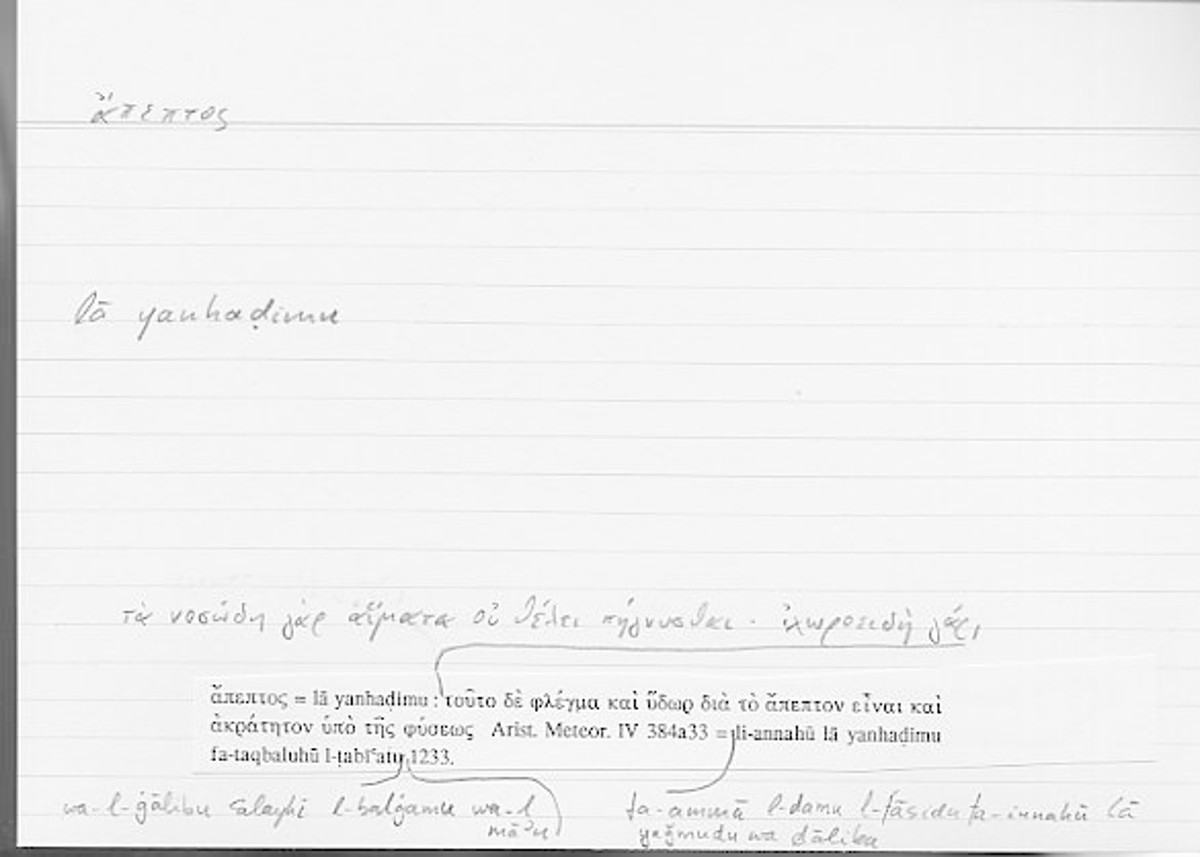 ἄπεπτος
lā yanhaḍimu
τὰ νοσώδη γὰρ αἵματα οὐ θέλει πήγνυσθαι· ἰχωροειδῆ γάρ,
ἄπεπτος = lā yanhaḍimu : τοῦτο δὲ φλέγμα καὶ ὕδωρ διὰ τὸ ἄπεπτον εἶναι καὶ
ἀκράτητον ὑπὸ τῆς φύσεως Arist. Meteor. IV 384a33 = li-annahū lā yanhaḍimu
fa-taqbaluhū l-ṭabīʿatu 1233.
wa-l-ġālibu ʿalayhi l-balġamu wa-l
māʾu
fa-ammā l-damu l-fāsidu fa-innahū lā
yaǧmudu wa ḏālika